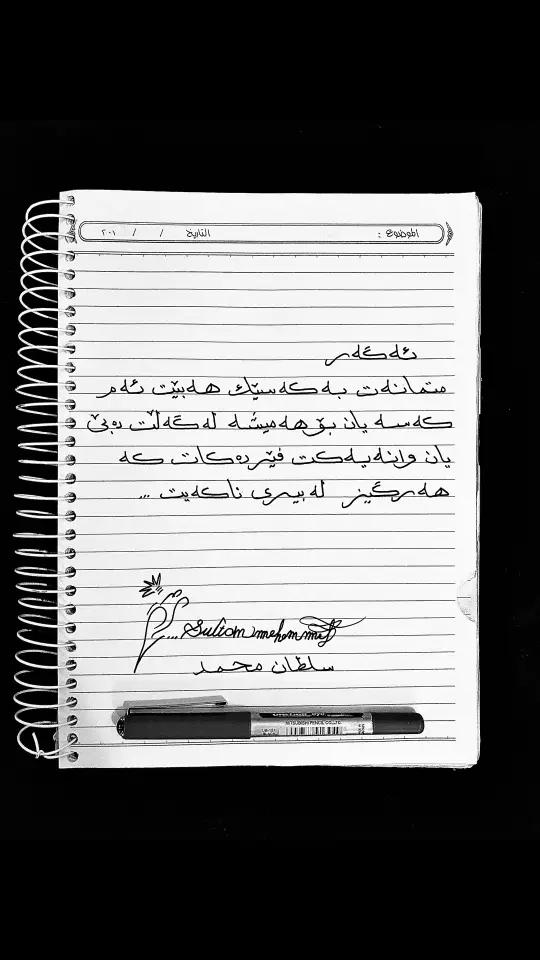 الموضوع : التاريخ / / ٢٠١
ئەگەر
متمانەت بەکەسێك هەبێت ئەم
کەسە یان بۆ هەمیشە لەگەڵت دەبێ
یان وانەیەکت فێردەکات کە
هەرگیز لەبیری ناکەیت ...
... Sultan mehemmed
سلطان محمد
MITSUBISHI PENCIL CO.,LTD.